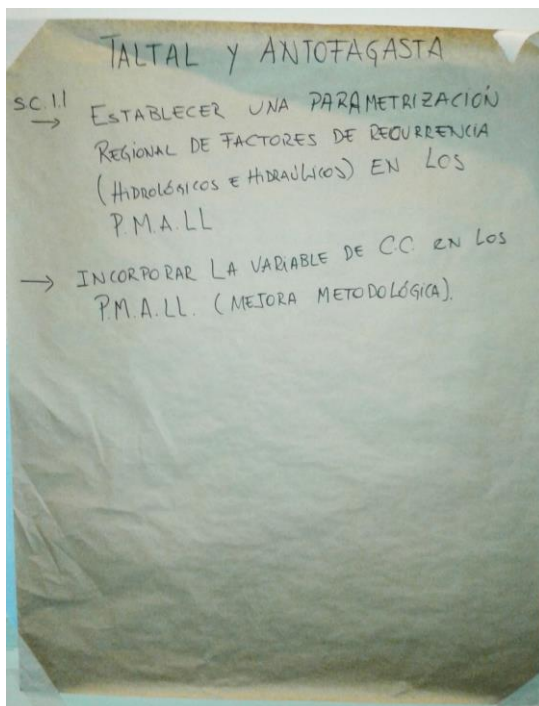 TALTAL Y ANTOFAGASTA
S.C. 1.1
→ ESTABLECER UNA PARAMETRIZACIÓN
REGIONAL DE FACTORES DE RECURRENCIA
(HIDROLÓGICOS E HIDRAÚLICOS) EN LOS
P.M.A.LL
→ INCORPORAR LA VARIABLE DE C.C. EN LOS
P.M.A.LL. (MEJORA METODOLÓGICA).